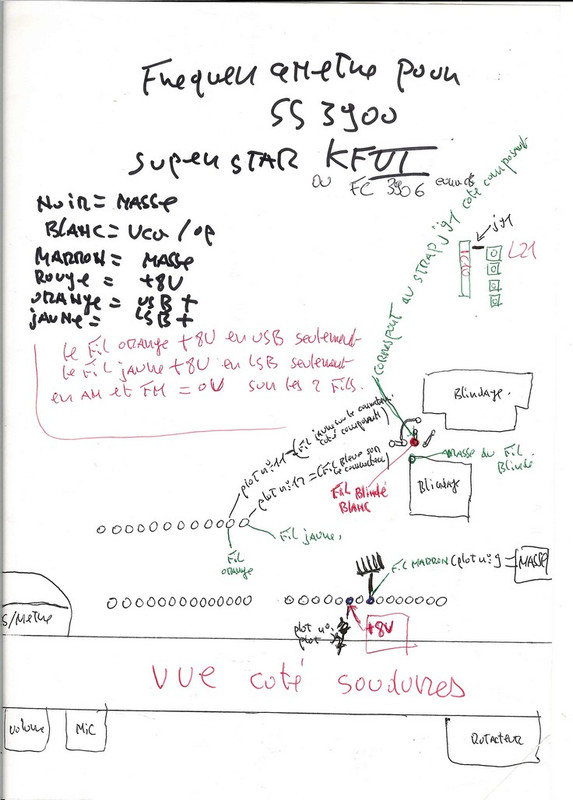 Frequencemetre pour
SS 3900
Super STAR KF VI
ou FC 3906
NOIR = MASSE
BLANC = VCO / OP
MARRON = MASSE
ROUGE = +8V
ORANGE = USB +
JAUNE = LSB +
le Fil ORANGE +8V en USB seulement
le Fil jaune +8V en LSB seulement
en AM et FM = 0V sur les 2 Fils.
CORRESPONT AU STRAP J91 coté composant
J91
L21
Blindage.
MASSE DU FIL
Blindé
Blindage
Fil Blindé
BLANC
plot n° 11 = (Fil jaune sur le
coté composants)
plot n° 12 = (Fil Bleue
Fil
ORANGE
Fil jaune.
Fil MARRON (plot n° 9 =
MASSE
S/Metre
plot n°
plot
+8V
VUE coté soudures
Volume
MIC
ROTACTEUR